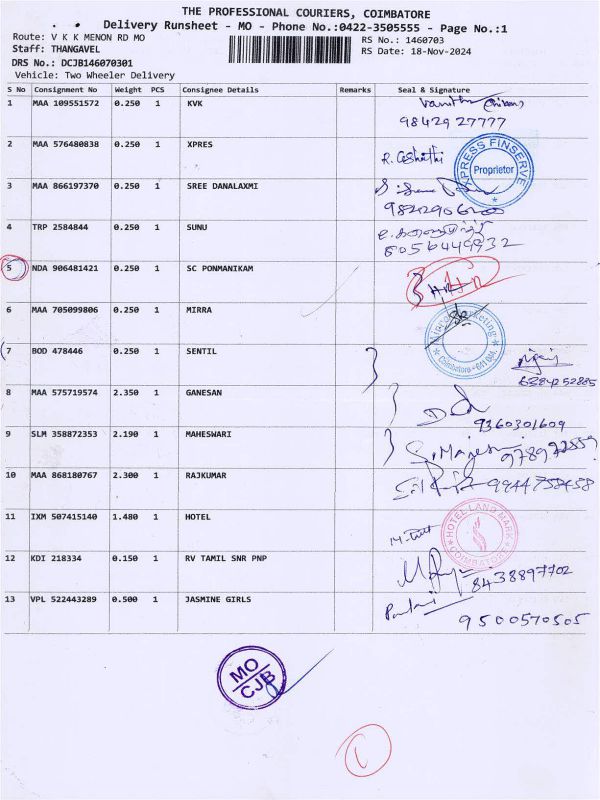 THE PROFESSIONAL COURIERS, COIMBATORE
Delivery Runsheet - MO - Phone No.:0422-3505555 - Page No.:1
Route: V K K MENON RD MO
RS No.: 1460703
Staff: THANGAVEL
RS Date: 18-Nov-2024
DRS No.: DCJB146070301
Vehicle: Two Wheeler Delivery
S No Consignment No Weight PCS Consignee Details Remarks Seal & Signature
1 MAA 109551572 0.250 1 KVK
98429 27777
2 MAA 576480838 0.250 1 XPRES
XPRESS FINSERVE
Proprietor
3 MAA 866197370 0.250 1 SREE DANALAXMI
4 TRP 2584844 0.250 1 SUNU
6056449932
5 NDA 906481421 0.250 1 SC PONMANIKAM
6 MAA 705099806 0.250 1 MIRRA
Coimbatore - 641 044.
7 BOD 478446 0.250 1 SENTIL
6384252885
8 MAA 575719574 2.350 1 GANESAN
9360301609
9 SLM 358872353 2.190 1 MAHESWARI
10 MAA 868180767 2.300 1 RAJKUMAR
9944758458
11 IXM 507415140 1.480 1 HOTEL
HOTEL LAND MARK
COIMBATORE
12 KDI 218334 0.150 1 RV TAMIL SNR PNP
8438897702
13 VPL 522443289 0.500 1 JASMINE GIRLS
9500570505
MO
CJB
1